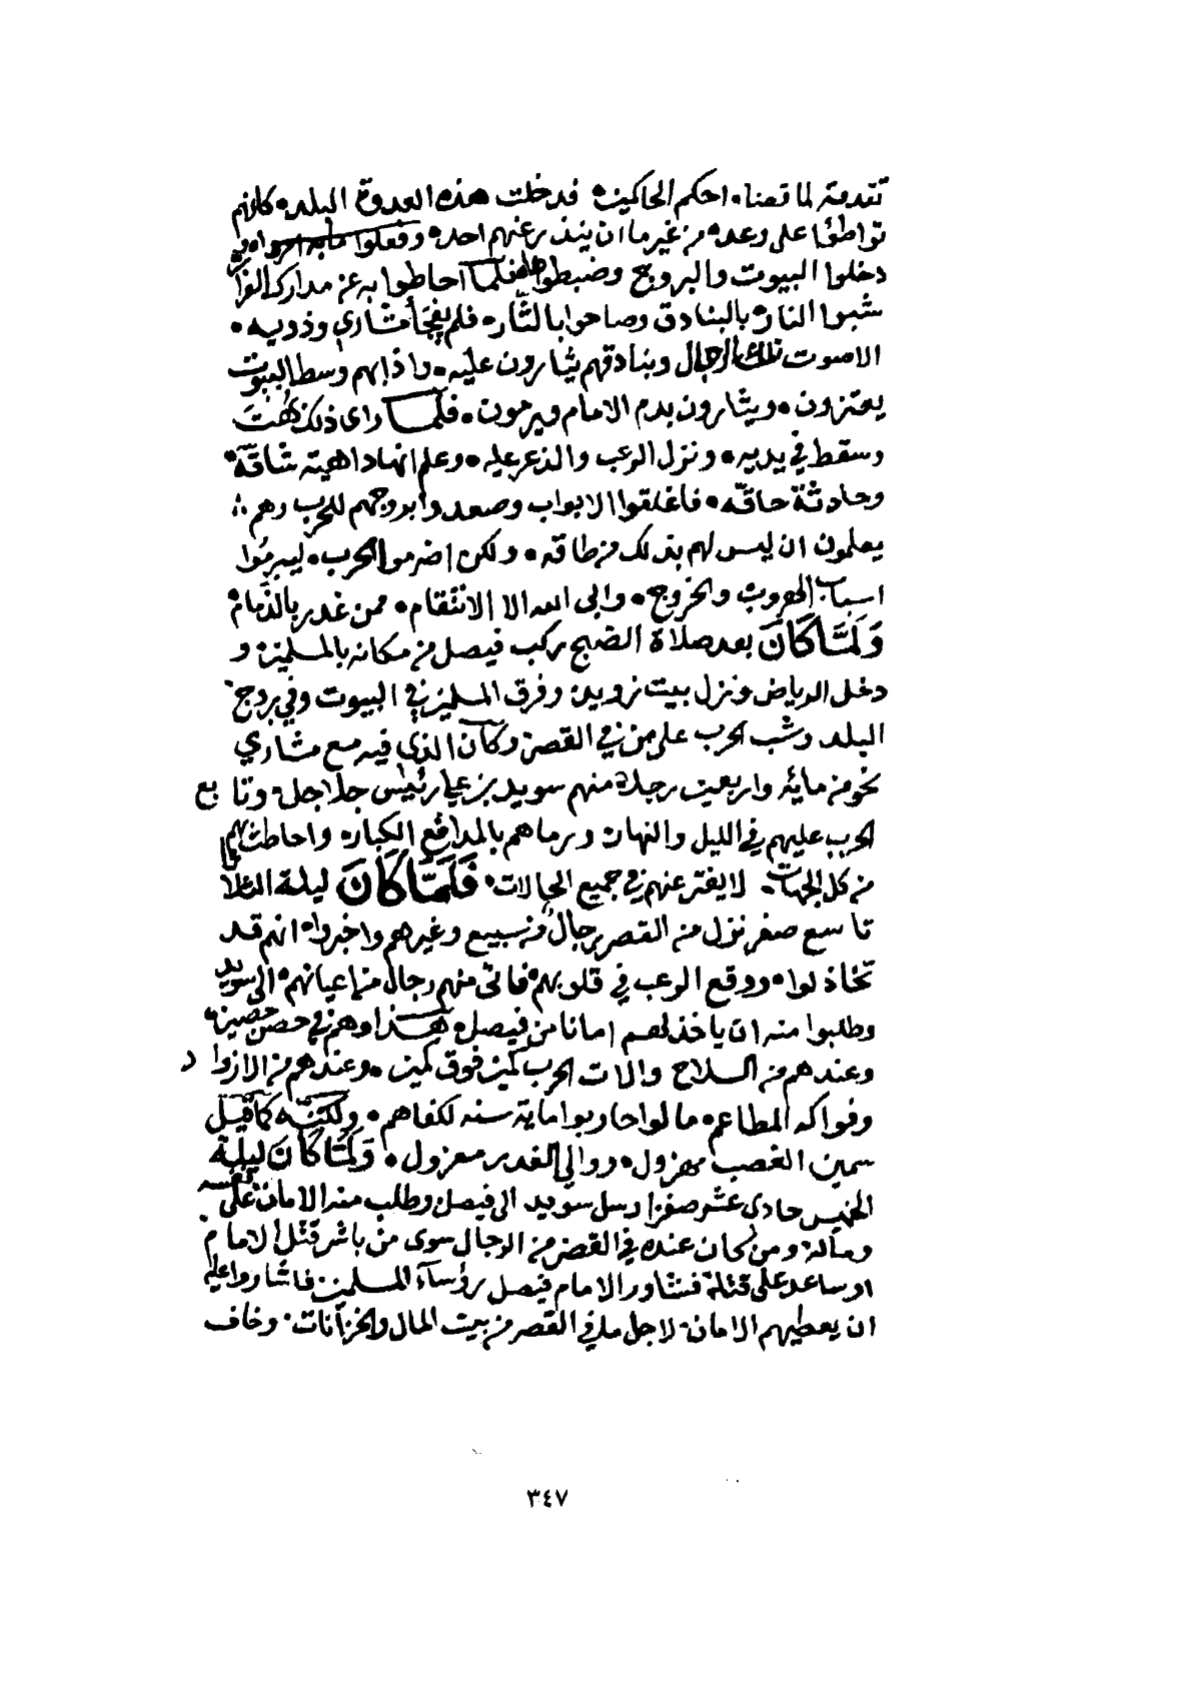 تقدمة لما قضاه احكم الحاكمين؛ فدخلت هذه العدوة البلد؛ كانهم
تواطؤا على وعد؛ من غير ما ان ينذر عنهم احد؛ وفعلوا
دخلوا البيوت والبروج وضبطوها فلما احاطوا به عن مدارك الفرار
شبوا النار بالبنادق وصاحوا بالثار؛ فلم يفجأ مشاري وذويه؛
الاصوت تلك الرجال وبنادقهم يثارون عليه؛ واذا هم وسط البيوت
يعتزون؛ ويثارون بدم الامام ويرمون؛ فلما راى ذلك بهت
وسقط في يديه؛ ونزل الرعب والذعر عليه؛ وعلم انها داهية شاقة؛
وحادثة حاقه؛ فاغلقوا الابواب وصعدوا بروجهم للحرب وهم ؛
يعلمون ان ليس لهم بذلك من طاقه؛ ولكن اضرموا الحرب؛ ليبرموا
اسباب الهروب والخروج؛ وابى الله الا الانتقام؛ ممن غدر بالذمام
وَلَمَّا كَانَ بعد صلاة الصبح ركب فيصل من مكانه بالمسلمين؛ و
دخل الرياض ونزل بيت زويد؛ وفرق المسلمين في البيوت وفي بروج
البلد وشب الحرب على من في القصر وكان الذي فيه مع مشاري
نحو من مائة واربعين رجلا؛ منهم سويد بن علي رئيس جلاجل؛ وتابع
الحرب عليهم في الليل والنهار؛ ورماهم بالمدافع الكبار؛ واحاطت بهم
من كل الجهات؛ لا يفتر عنهم في جميع الحالات؛ فَلَمَّا كَانَ ليلة الثلاثا
تاسع صفر نزل من القصر رجال من سبيع وغيرهم واخبروا؛ انهم قد
تخاذلوا؛ ووقع الرعب في قلوبهم؛ فاتى منهم رجال من اعيانهم؛ الى سويد
وطلبوا منه ان ياخذ لهم امانا من فيصل؛ هذا وهم في حصن حصين؛
وعندهم من السلاح والات الحرب كمين فوق كمين؛ وعندهم من الازواد
وفواكه المطاعم؛ ما لو احاربوا ماية سنه لكفاهم؛ ولكنه كما قيل
سمين الغصب مهزول؛ ووالي الغدر معزول؛ وَلَمَّا كَانَ ليلة
الخميس حادى عشر صفر ارسل سويد الى فيصل وطلب منه الامان على نفسه
وماله؛ ومن كان عنده في القصر من الرجال سوى من باشر قتل الامام
او ساعد على قتله؛ فشاور الامام فيصل رؤساء المسلمين؛ فاشاروا عليه
ان يعطيهم الامان؛ لاجل ما في القصر من بيت المال والخزانات؛ وخاف
٣٤٧